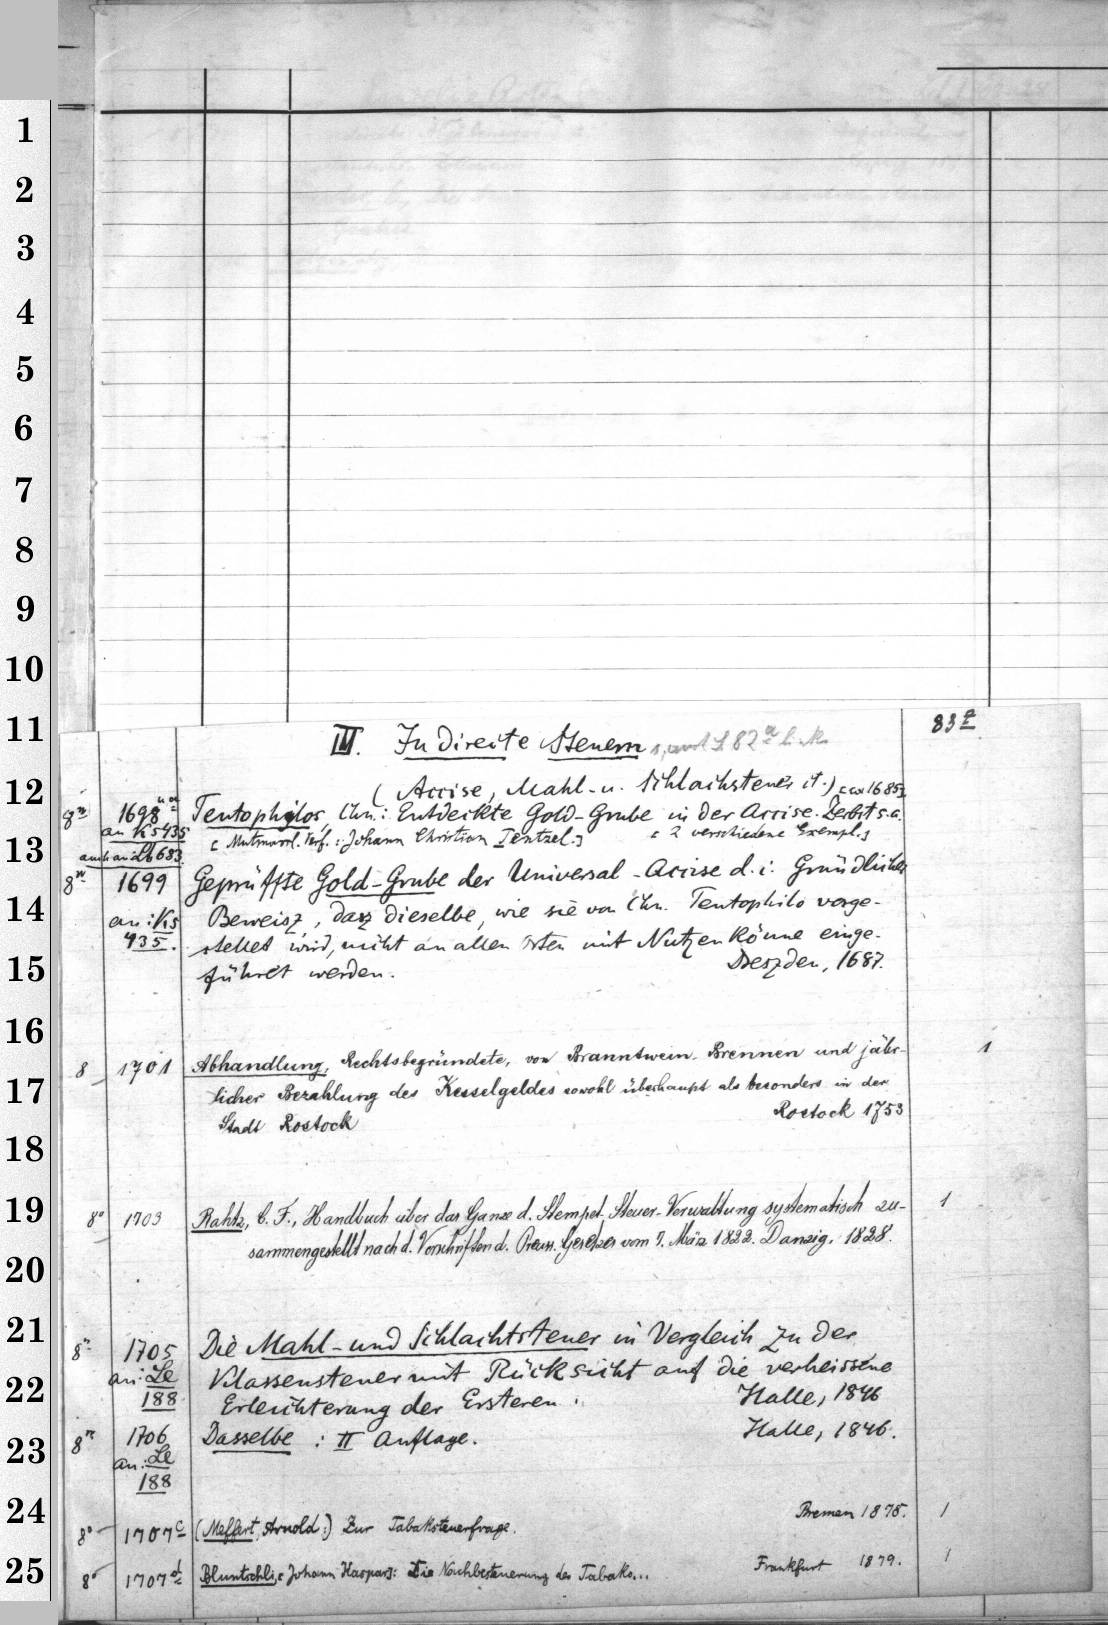 1
2
3
4
5
6
7
8
9
10
11
12
13
14
15
16
17
18
19
20
21
22
23
24
25
III. Indirecte Steuern 83
(Accise, Mahl- u. Schlachtsteuer it.)
8° 1698 Teutophilos, Chn.: Entdeckte Gold-Grube in der Accise. Zerbst s.a.
an K5 435 [Mutmassl. Verf.: Johann Christian Tentzel.] [2 verschiedene Exempl.]
auch an: Lb 683
8° 1699 Geprüffte Gold-Grube der Universal-Accise d.i. Gründlicher
an: K5 Beweisz, dasz dieselbe, wie sie von Chn. Teutophilo vorge-
435. stellet wird, nicht an allen Orten mit Nutzen könne einge-
führet werden. Dreszden, 1687.
8 1701 Abhandlung, Rechtsbegründete, von Branntwein-Brennen und jähr- 1
licher Bezahlung des Kesselgeldes sowohl überhaupt als besonders in der
Stadt Rostock Rostock 1753
8° 1703 Rahtz, C. F., Handbuch über das Ganze d. Stempel-Steuer-Verwaltung systematisch zu- 1
sammengestellt nach d. Vorschriften d. Preuss. Gesetzes vom 7. März 1822. Danzig. 1828.
8° 1705 Die Mahl- und Schlachtsteuer in Vergleich zu der
an: Le Klassensteuer mit Rücksicht auf die verheissene
188 Erleichterung der Ersteren. Halle, 1846
8° 1706 Dasselbe: II Auflage. Halle, 1846.
an: Le
188
8° 1707c (Meffert, Arnold:) Zur Tabaksteuerfrage. Bremen 1878. 1
8° 1707d Bluntschli, [Johann Kaspar]: Die Nachbesteuerung des Tabaks... Frankfurt 1879. 1